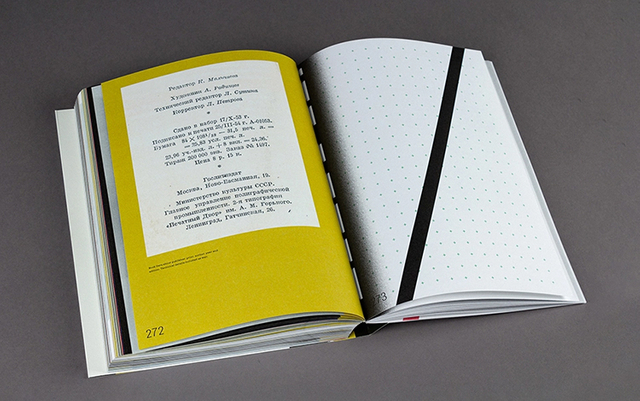 Редактор К.
Художник А. Радищев
Технический редактор Л. Сутина
Корректор Л. Петрова
*
Сдано в набор 17/X-53 г.
Подписано к печати 25/III-54 г. А-01053.
Бумага 84 × 108¹/₃₂ — 31,5 печ. л. —
— 25,83 усл. печ. л.
23,96 уч.-изд. л. + 8 вкл. — 24,36.
Тираж 300 000 экз. Заказ № 1497.
Цена 8 р. 15 к.
*
Гослитиздат
Москва, Ново-Басманная, 19.
*
Министерство культуры СССР.
Главное управление полиграфической
промышленности. 2-я типография
«Печатный Двор» им. А. М. Горького.
Ленинград, Гатчинская, 26.
272
73